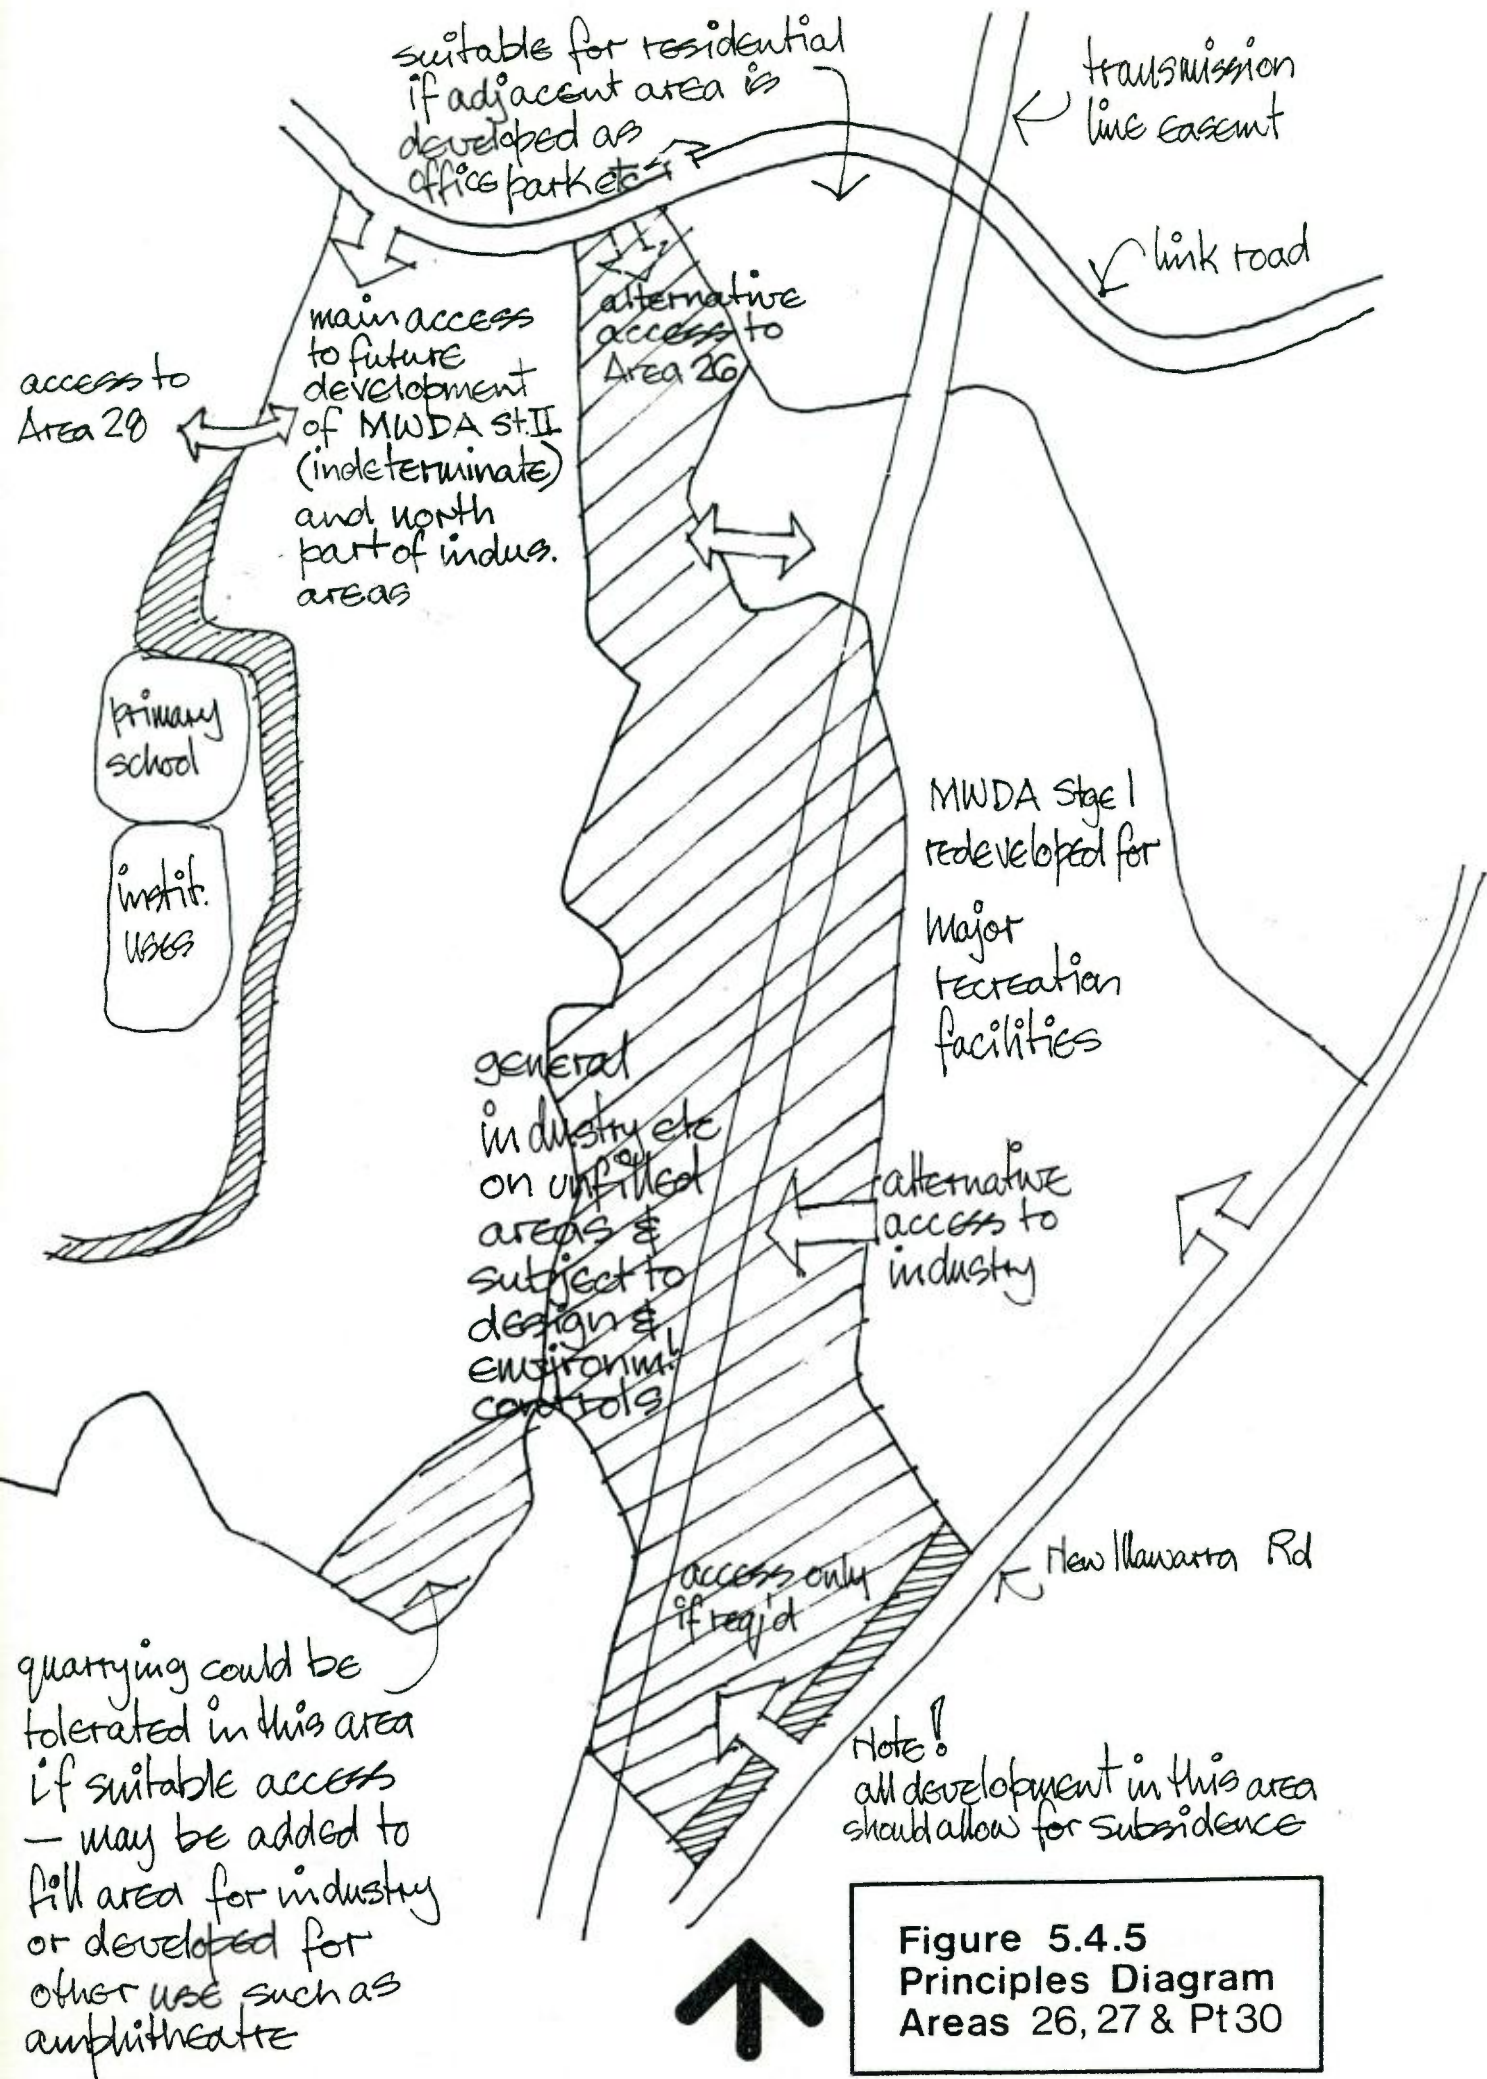 suitable for residential
if adjacent area is
developed as
office park etc
transmission
line easemt
link road
main access
to future
development
of MWDA St.II
(indeterminate)
and north
part of indus.
areas
alternative
access to
Area 26
access to
Area 28
primary
school
instit.
uses
MWDA Stge 1
redeveloped for
major
recreation
facilities
general
industry etc
on unfilled
areas &
subject to
design &
environm!
controls
alternative
access to
industry
New Illawarra Rd
access only
if req'd
quarrying could be
tolerated in this area
if suitable access
— may be added to
fill area for industry
or developed for
other use such as
amphitheatre
Note!
all development in this area
should allow for subsidence
Figure 5.4.5
Principles Diagram
Areas 26, 27 & Pt 30